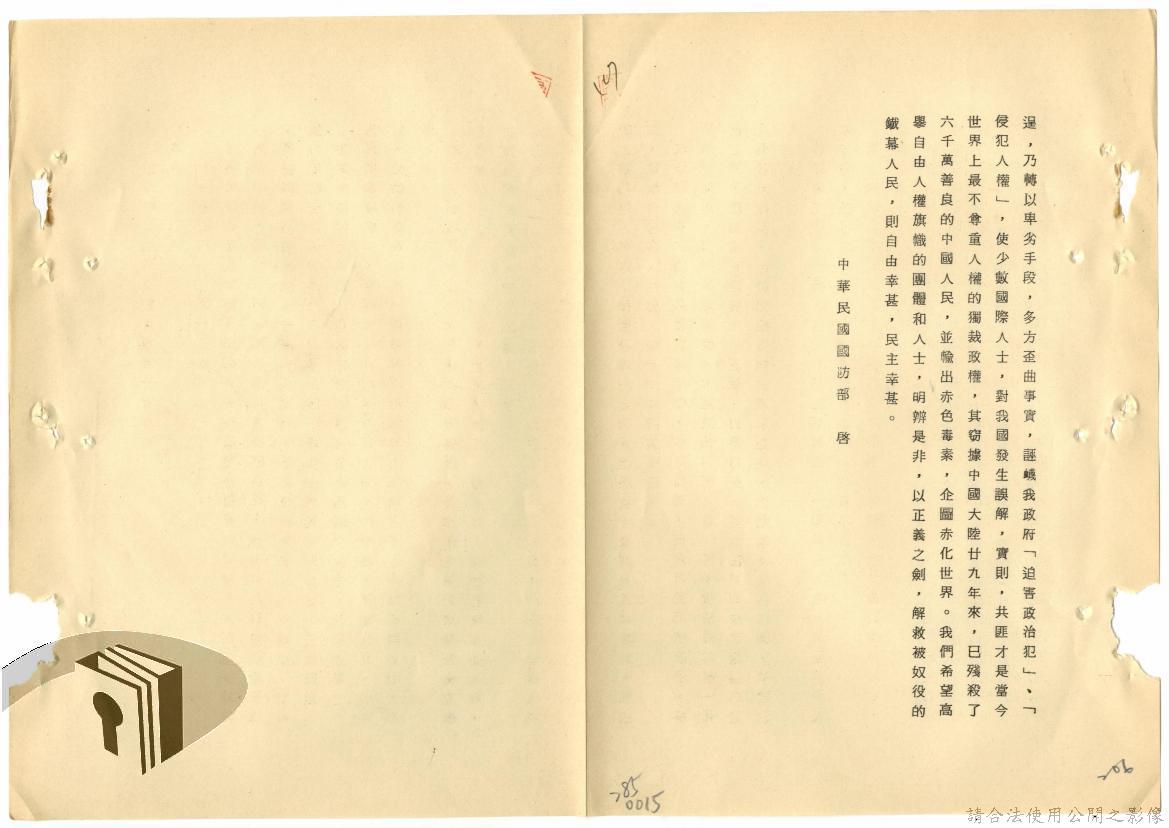 逞，乃轉以卑劣手段，多方歪曲事實，誣衊我政府「迫害政治犯」、「
侵犯人權」，使少數國際人士，對我國發生誤解，實則，共匪才是當今
世界上最不尊重人權的獨裁政權，其竊據中國大陸廿九年來，已殘殺了
六千萬善良的中國人民，並輸出赤色毒素，企圖赤化世界。我們希望高
舉自由人權旗幟的團體和人士，明辨是非，以正義之劍，解救被奴役的
鐵幕人民，則自由幸甚，民主幸甚。
中華民國國防部　啓
285
0015
206
請合法使用公開之影像